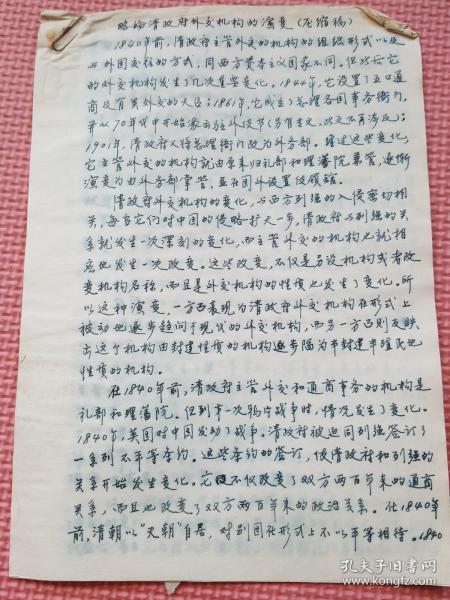 略论清政府外交机构的演变(压缩稿)
1840年前,清政府主管外交的机构的组织形式以及
与外国交往的方式,同西方资本主义国家不同。但此后它
的外交机构发生了几次重要变化。1844年,它设置了五口通
商及有关外交的大臣;1861年,它成立了总理各国事务衙门,
并从70年代中开始派出驻外使节(另有专文,此文不再涉及);
1901年,清政府又将总理衙门改为外务部。经过这些变化,
它主管外交的机构就由原来归礼部和理藩院兼管,逐渐
演变为由外务部掌管,并在国外设置使领馆。
清政府外交机构的变化,与西方列强的入侵密切相
关,每当它们对中国的侵略扩大一步,清政府与列强的关
系就发生一次深刻的变化,而主管外交的机构也就相
应地发生一次改变。这些改变,不仅是另设机构或者改
变机构名称,而且是外交机构的性质也发生了变化。所
以这种演变,一方面表现为清政府外交机构在形式上
被动地逐步趋向于现代的外交机构,而另一方面则反映
出这个机构由封建性质的机构逐步陷为半封建半殖民地
性质的机构。
在1840年前,清政府主管外交和通商事务的机构是
礼部和理藩院。但到第一次鸦片战争时,情况发生了变化。
1840年,英国对中国发动了战争。清政府被迫同列强签订了
一系列不平等条约。这些条约的签订,使清政府和列强的
关系开始发生变化。它不仅改变了双方两百年来的通商
关系,而且也改变了双方两百年来的政治关系。在1840年
前,清朝以“天朝”自居,对别国在形式上不以平等相待。1840
孔夫子旧书网
www.kongfz.com